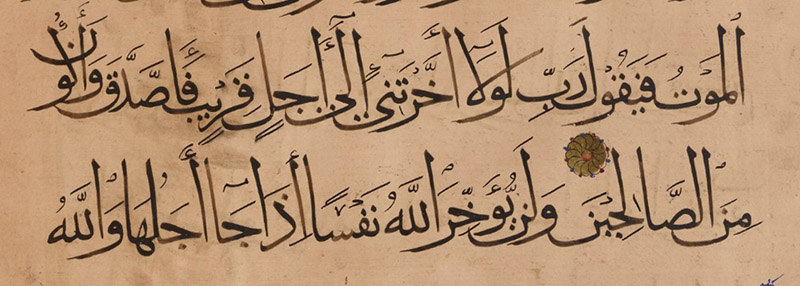 الْمَوْتُ فَيَقُولَ رَبِّ لَوْلَآ أَخَّرْتَنِىٓ إِلَىٓ أَجَلٍ قَرِيبٍ فَأَصَّدَّقَ وَأَكُونَ
مِنَ الصَّالِحِينَ وَلَنْ يُؤَخِّرَ اللَّهُ نَفْسًا إِذَا جَآ أَجَلُهَا وَاللَّهُ